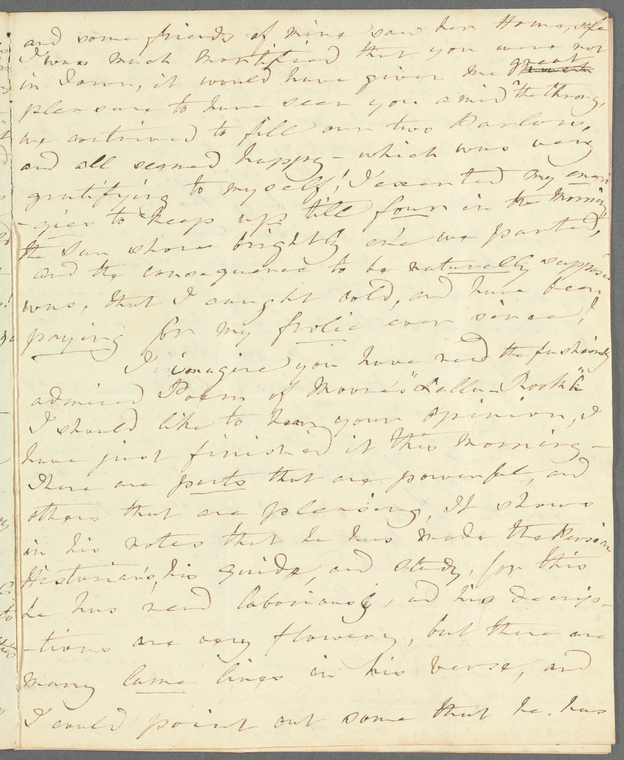 and some friends of mine saw her Home, safe
I was much mortified that you were not
in Town, it would have given me great
pleasure to have seen you amid the throng,
we contrived to fill our two Parlors,
and all seemed happy - which was very
gratifying to myself! I exerted my ener
-gies to keep up till four in the Morning
the Sun shone brightly ere we parted,
and the consequence to be naturally suppose
was, that I caught cold, and have been
paying for my frolic ever since!
I imagine you have read the fashionably
admired Poem of Moore's "Lalla-Rookh"
I should like to hear your opinion, I
have just finished it this Morning -
There are parts that are powerful, and
others that are pleasing, It shows
in his notes that he has made the Persian
Historians, his guide, and study, for this
he has read laboriously, and his descrip-
-tions are very flowery, but there are
many lame lines in his verse, and
I could point out some that he has